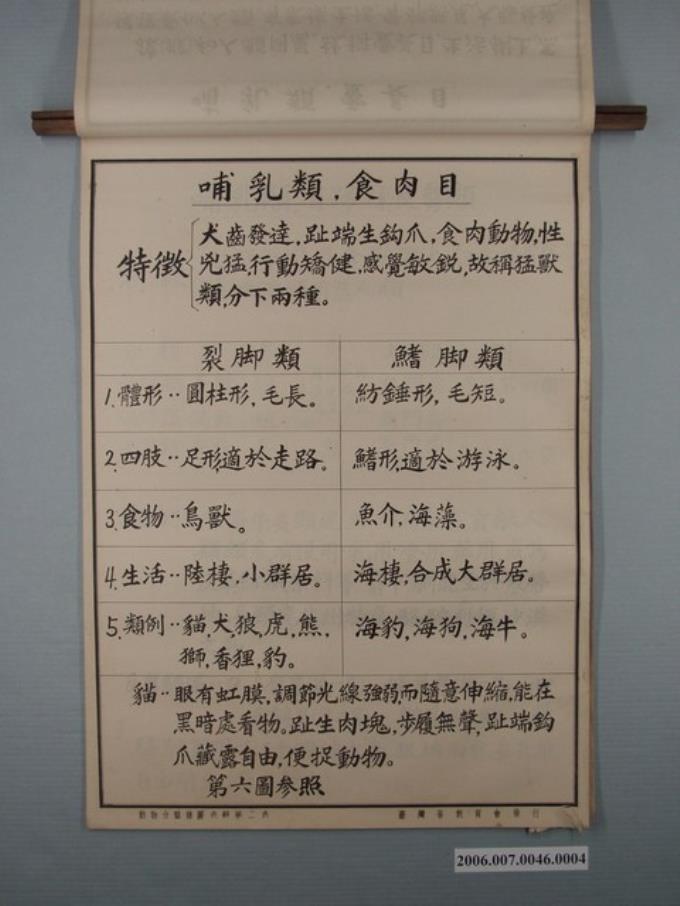 哺乳類．食肉目
特徵
犬齒發達，趾端生鈎爪，食肉動物，性
兇猛，行動矯健，感覺敏銳，故稱猛獸
類，分下兩種。
裂脚類 鰭脚類
1.體形‥圓柱形，毛長。 紡錘形，毛短。
2.四肢‥足形，適於走路。 鰭形，適於游泳。
3.食物‥鳥獸。 魚介，海藻。
4.生活‥陸棲，小群居。 海棲，合成大群居。
5.類例‥貓，犬，狼，虎，熊， 海豹，海狗，海牛。
獅，香狸，豹。
貓‥眼有虹膜，調節光線強弱，而隨意伸縮，能在
黑暗處看物。趾生肉塊，步履無聲，趾端鈎
爪藏露自由，便捉動物。
第六圖參照
臺灣省教育會發行
2006.007.0046.0004